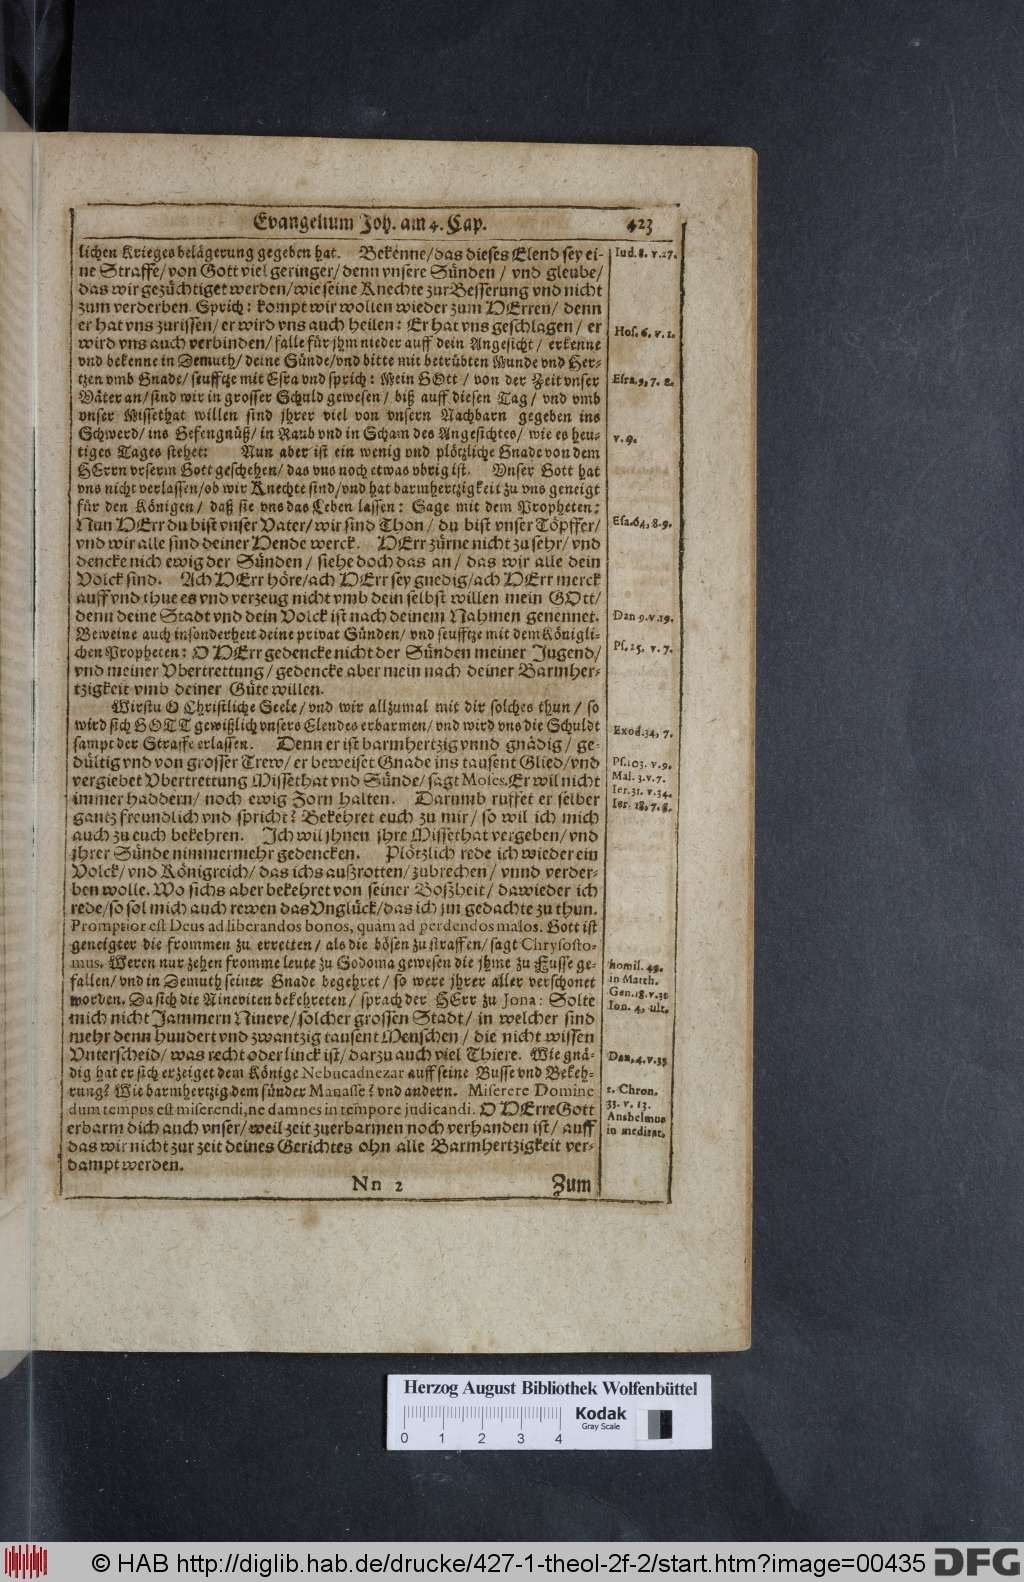 Evangelium Joh. am 4. Cap. 423
lichen Krieges belägerung gegeben hat. Bekenne/das dieses Elend sey ei-
ne Straffe/von Gott viel geringer/denn vnsere Sünden/ vnd gleube/
das wir gezüchtiget werden/wie seine Knechte zur Besserung vnd nicht
zum verderben. Sprich: kompt wir wollen wieder zum HErren/ denn
er hat vns zurissen/er wird vns auch heilen: Er hat vns geschlagen/ er
wird vns auch verbinden/falle für jhm nieder auff dein Angesicht/ erkenne
vnd bekenne in Demuth/deine Sünde/vnd bitte mit betrübten Munde vnd Her-
tzen vmb Gnade/seufftze mit Esra vnd sprich: Mein GOtt/ von der Zeit vnser
Väter an/sind wir in grosser Schuld gewesen/ biß auff diesen Tag/ vnd vmb
vnser Missethat willen sind jhrer viel von vnsern Nachbarn gegeben ins
Schwerd/ins Gefengnüß/in Raub vnd in Scham des Angesichtes/wie es heu-
tiges Tages stehet: Nun aber ist ein wenig vnd plötzliche Gnade von dem
HErrn vnserm Gott geschehen/das vns noch etwas vbrig ist. Vnser Gott hat
vns nicht verlassen/ob wir Knechte sind/vnd hat barmhertzigkeit zu vns geneigt
für den Königen/ daß sie vns das Leben lassen: Sage mit dem Propheten:
Nun HErr du bist vnser Vater/wir sind Thon/ du bist vnser Töpffer/
vnd wir alle sind deiner Hende werck. HErr zürne nicht zu sehr/vnd
dencke nich ewig der Sünden/ siehe doch das an/ das wir alle dein
Volck sind. Ach HErr höre/ach HErr sey gnedig/ach HErr merck
auff vnd thue es vnd verzeug nicht vmb dein selbst willen mein GOtt/
denn deine Stadt vnd dein Volck ist nach deinem Nahmen genennet.
Beweine auch insonderheit deine privat Sünden/vnd seufftze mit dem Königli-
chen Propheten: O HErr gedencke nicht der Sünden meiner Jugend/
vnd meiner Vbertrettung/gedencke aber mein nach deiner Barmher-
tzigkeit vmb deiner Güte willen.
Wirstu O Christliche Seele/vnd wir allzumal mit dir solches thun/ so
wird sich GOTT gewißlich vnsers Elendes erbarmen/vnd wird vns die Schuldt
sampt der Straffe erlassen. Denn er ist barmhertzig vnnd gnädig/ ge-
dültig vnd von grosser Trew/er beweiset Gnade ins tausent Glied/vnd
vergiebet Vbertrettung Missethat vnd Sünde/sagt Moses. Er wil nicht
immer haddern/ noch ewig Zorn halten. Darumb ruffet er selber
gantz freundlich vnd spricht? Bekehret euch zu mir/so wil ich mich
auch zu euch bekehren. Ich wil jhnen jhre Missethat vergeben/vnd
jhrer Sünde nimmermehr gedencken. Plötzlich rede ich wieder ein
Volck/vnd Königreich/das ichs außrotten/zubrechen/vnnd verder-
ben wolle. Wo sichs aber bekehret von seiner Boßheit/dawieder ich
rede/so sol mich auch rewen das Vnglück/das ich jm gedachte zu thun.
Promptior est Deus ad liberandos bonos, quam ad perdendos malos. Gott ist
geneigter die frommen zu erretten/als die bösen zu straffen/sagt Chrysosto-
mus. Weren nur zehen fromme leute zu Sodoma gewesen die jhme zu Fusse ge-
fallen/vnd in Demuth seiner Gnade begehret/so were jhrer aller verschonet
worden. Da sich die Nineviten bekehreten/sprach der HErr zu Jona: Solte
mich nicht Jammern Nineve/solcher grossen Stadt/ in welcher sind
mehr denn hundert vnd zwantzig tausent Menschen/ die nicht wissen
Vnterscheid/was recht oder linck ist/darzu auch viel Thiere. Wie gnä-
dig hat er sich erzeiget dem Könige Nebucadnezar auff seine Busse vnd Bekeh-
rung? Wie barmhertzig dem sünder Manasse? vnd andern. Miserere Domine
dum tempus est miserendi, ne damnes in tempore judicandi. O HErre Gott
erbarm dich auch vnser/weil zeit zuerbarmen noch verhanden ist/auff
das wir nicht zur zeit deines Gerichtes ohn alle Barmhertzigkeit ver-
dampt werden.
Nn 2 Zum
Iud. 8. v. 27.
Hos. 6. v. 1.
Esra. 9, 7. 8.
v. 9.
Esa. 64, 8. 9.
Dan 9. v. 19.
Ps. 25. v. 7.
Exod. 34, 7.
Ps. 103. v. 9.
Mal. 3. v. 7.
Ier. 31. v. 34.
Ier. 18, 7. 8.
homil. 49.
in Matth.
Gen. 18. v. 32
Ion. 4, ult.
Dan. 4. v. 33
2. Chron.
33. v. 13.
Anshelmus
in meditat.
Herzog August Bibliothek Wolfenbüttel
Kodak
Gray Scale
0 1 2 3 4
© HAB http://diglib.hab.de/drucke/427-1-theol-2f-2/start.htm?image=00435 DFG